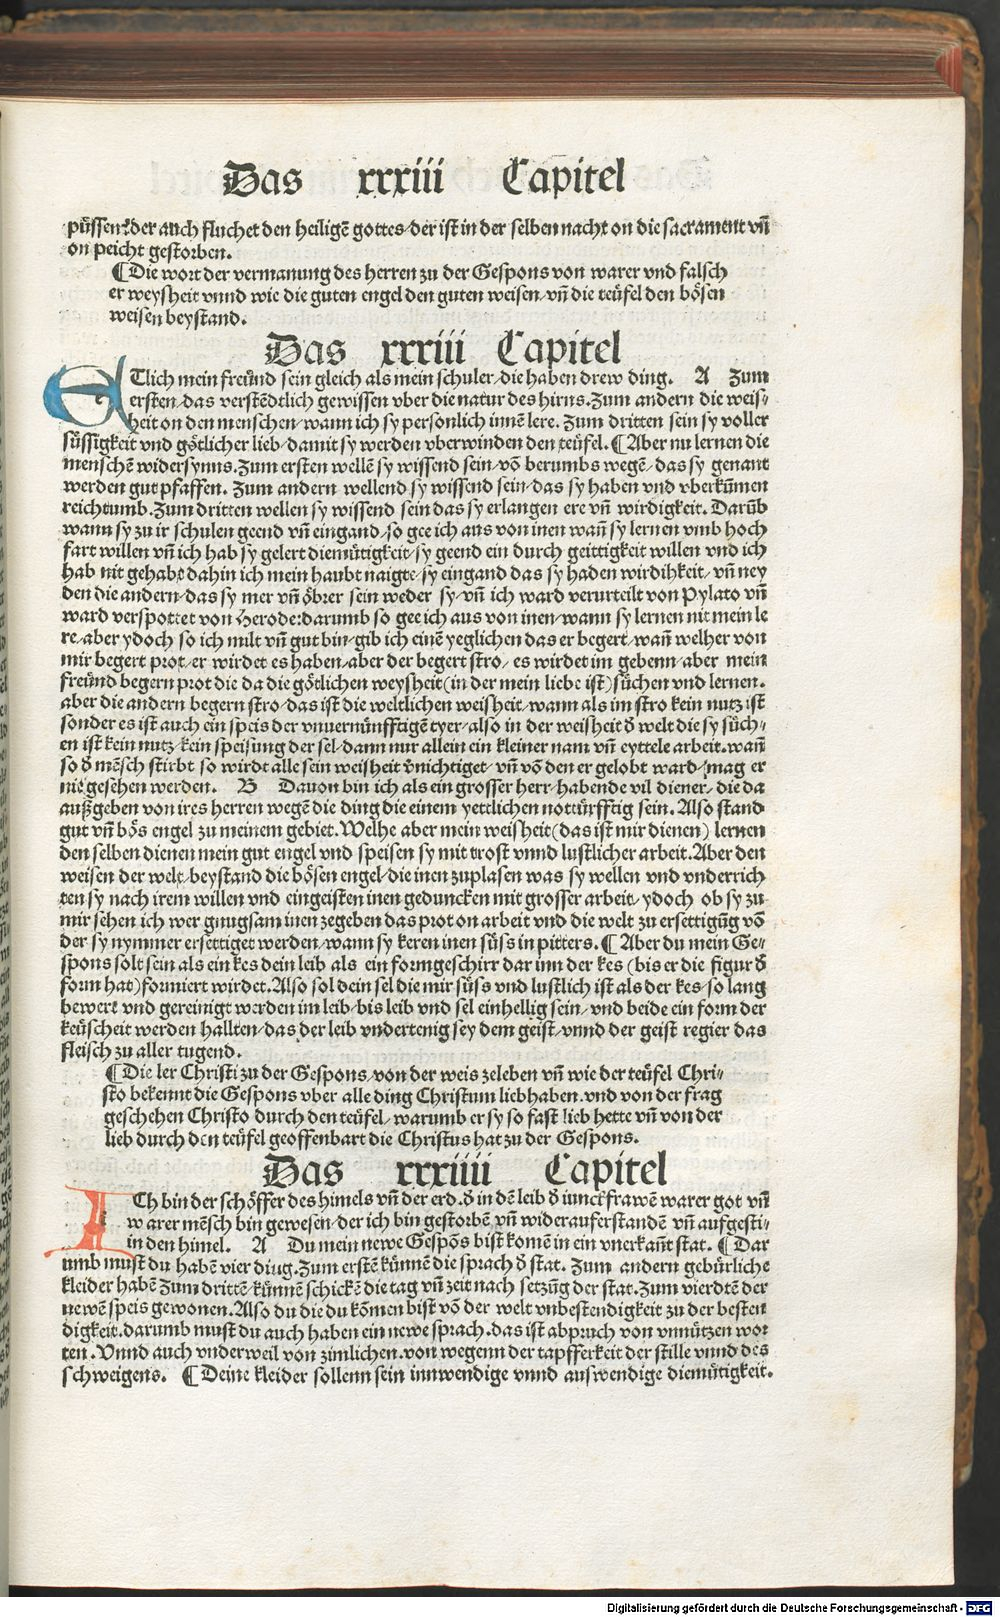 Das xxxiii Capitel
püssen oder auch fluchet den heiligē gottes/der ist in der selben nacht on die sacrament vñ
on peicht gestorben.
¶Die wort der vermanung des herren zu der Gespons von warer vnd falsch
er weysheit vnnd wie die guten engel den guten weisen/vñ die teüfel den bösen
weisen beystand.
Das xxxiii Capitel
ETlich mein freünd sein gleich als mein schuler/die haben drew ding. A Zum
ersten/das verstēdtlich gewissen vber die natur des hirns. Zum andern die weis⸗
heit on den menschen/wann ich sy personlich innē lere. Zum dritten sein sy voller
süssigkeit vnd götlicher lieb/damit sy werden vberwinden den teüfel. ¶Aber nu lernen die
menschē widersynns. Zum ersten wellē sy wissend sein/vō berumbs wegē/das sy genant
werden gut pfaffen. Zum andern wellend sy wissend sein/das sy haben vnd vberkūmen
reichtumb. Zum dritten wellen sy wissend sein das sy erlangen ere vñ wirdigkeit. Darūb
wann sy zu ir schulen geend vñ eingand/so gee ich aus von inen wañ sy lernen vmb hoch
fart willen vñ ich hab sy gelert diemütigkeit/sy geend ein durch geittigkeit willen vnd ich
hab nit gehabt dahin ich mein haubt naigte/sy eingand das sy haden wirdihkeit/vñ ney
den die andern/das sy mer vñ öbrer sein weder sy/vñ ich ward verurteilt von Pylato vñ
ward verspottet von Herode:darumb so gee ich aus von inen/wann sy lernen nit mein le
re/aber ydoch so ich milt vñ gut bin/gib ich einē yeglichen das er begert/wañ welher von
mir begert prot/er wirdet es haben/aber der begert stro/es wirdet im gebenn/aber mein
freünd begern prot die da die götlichen weysheit(in der mein liebe ist)süchen vnd lernen.
aber die andern begern stro/das ist die weltlichen weisheit/wann als im stro kein nutz ist
sonder es ist auch ein speis der vnuernünfftigē tyer/also in der weisheit d̄ welt die sy süch⸗
en ist kein nutz/kein speisung der sel/dann nur allein ein kleiner nam vñ eyttele arbeit. wañ
so d̄ mēsch stirbt so wirdt alle sein weisheit v̄nichtiget/vñ vō den er gelobt ward/mag er
nit gesehen werden. B Dauon bin ich als ein grosser herr/habende vil diener/die da
außgeben von ires herren wegē die ding die einem yettlichen nottürfftig sein. Also stand
gut vñ bös engel zu meinem gebiet. Welhe aber mein weisheit(das ist mir dienen) lernen
den selben dienen mein gut engel vnd speisen sy mit trost vnnd lustlicher arbeit. Aber den
weisen der welt/beystand die bösen engel/die inen zuplasen was sy wellen vnd vnderrich
ten sy nach irem willen vnd eingeisten inen geduncken mit grosser arbeit/ydoch ob sy zu
mir sehen ich wer gnugsam inen zegeben das prot on arbeit vnd die welt zu ersettigūg vō
der sy nymmer ersettiget werden/wann sy keren inen süss in pitters. ¶Aber du mein Ge⸗
spons solt sein als ein kes dein leib als ein formgeschirr dar inn der kes (bis er die figur d̄
form hat)formiert wirdet. Also sol dein sel die mir süss vnd lustlich ist als der kes/so lang
bewert vnd gereinigt werden im leib/bis leib vnd sel einhellig sein/vnd beide ein form der
keüscheit werden hallten/das der leib vndertenig sey dem geist/vnnd der geist regier das
fleisch zu aller tugend.
¶Die ler Christi zu der Gespons/von der weis zeleben vñ wie der teüfel Chri⸗
sto bekennt die Gespons vber alle ding Christum liebhaben. vnd von der frag
geschehen Christo durch den teüfel/warumb er sy so fast lieb hette vñ von der
lieb durch den teüfel geoffenbart die Christus hat zu der Gespons.
Das xxxiiii Capitel
ICh bin der schöffer des himels vñ der erd. d̄ in dē leib d̄ iunckfrawē warer got vñ
warer mēsch bin gewesen/der ich bin gestorbē vñ widerauferstandē vñ aufgesti⸗
in den himel. A Du mein newe Gespōs bist komē in ein vnerkañt stat. ¶Dar
umb must du habē vier ding. Zum erstē künnē die sprach d̄ stat. Zum andern gebürliche
kleider habē Zum drittē künnē schickē die tag vñ zeit nach setzūg der stat. Zum vierdtē der
newē speis gewonen. Also du die du kōmen bist vō der welt vnbestendigkeit zu der besten
digkeit. darumb must du auch haben ein newe sprach. das ist abpruch von vnnützen wor
ten. Vnnd auch vnderweil von zimlichen. von wegenn der tapfferkeit der stille vnnd des
schweigens. ¶Deine kleider sollenn sein innwendige vnnd auswendige diemütigkeit.
Digitalisierung gefördert durch die Deutsche Forschungsgemeinschaft - DFG